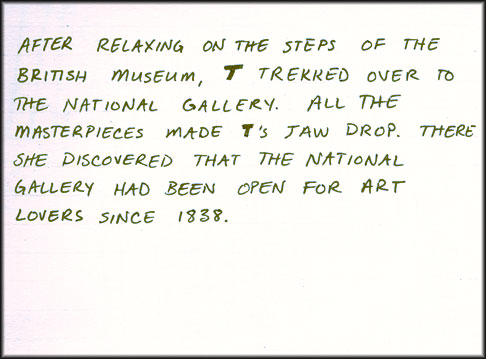 AFTER RELAXING ON THE STEPS OF THE
BRITISH MUSEUM, T TREKKED OVER TO
THE NATIONAL GALLERY. ALL THE
MASTERPIECES MADE T'S JAW DROP. THERE
SHE DISCOVERED THAT THE NATIONAL
GALLERY HAD BEEN OPEN FOR ART
LOVERS SINCE 1838.